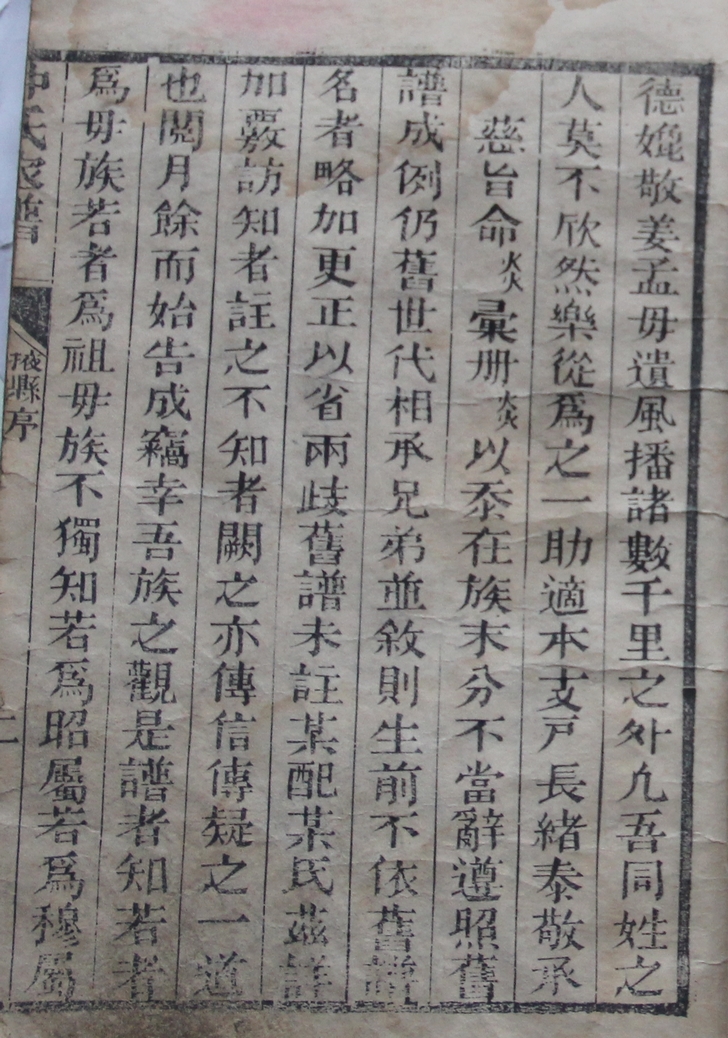 德媲敬姜孟毋遺風播諸數千里之外凢吾同姓之
人莫不欣然樂從爲之一助適本支戸長緒泰敬承
慈旨命炎彙册炎以忝在族末分不當辭遵照舊
譜成例仍舊世代相承兄弟並敘則生前不依舊譜
名者略加更正以省兩歧舊譜未註某配某氏茲詳
加覈訪知者註之不知者闕之亦傳信傳疑之一道
也閱月餘而始告成竊幸吾族之觀是譜者知若者
爲毋族若者爲祖毋族不獨知若爲昭屬若爲穆屬
氏家譜
掖縣序
二